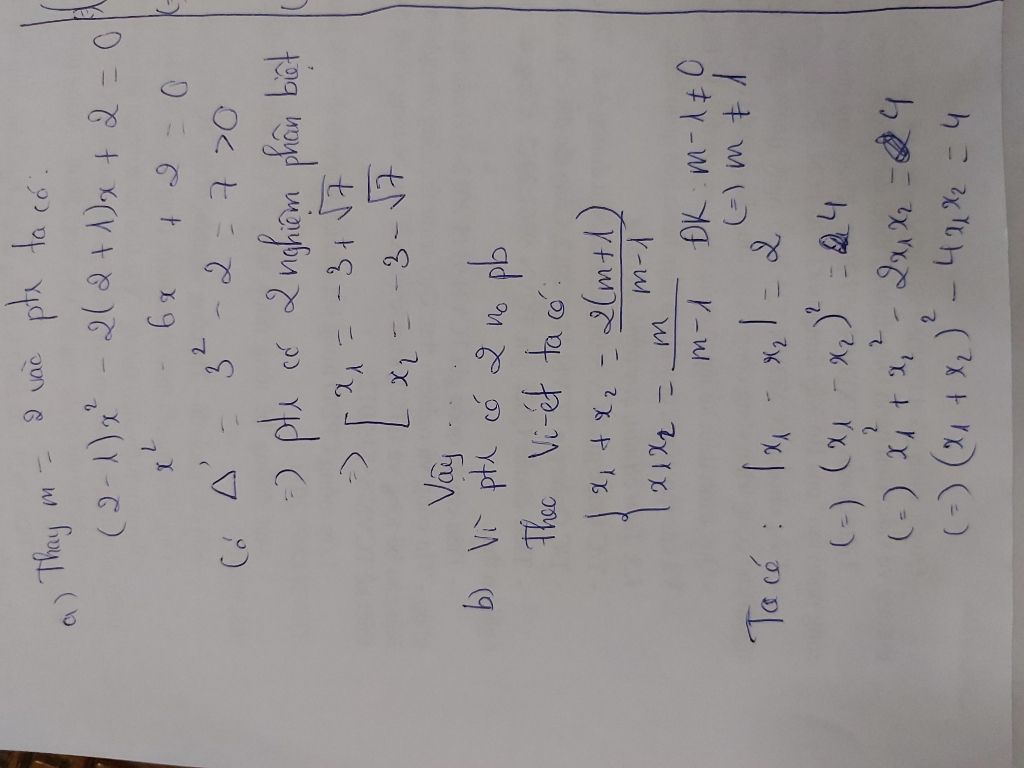 a) Thay m = 2 vào ptr ta có:
(2 - 1)x² - 2(2 + 1)x + 2 = 0
x² - 6x + 2 = 0
Có Δ' = 3² - 2 = 7 > 0
=) ptr có 2 nghiệm phân biệt
=) [ x₁ = -3 + √7
x₂ = -3 - √7
Vậy ...
b) Vì ptr có 2 no pb
Theo Vi-ét ta có:
{ x₁ + x₂ = 2(m+1)/m-1
x₁x₂ = m/m-1 ĐK: m-1 ≠ 0
(=) m ≠ 1
Ta có: |x₁ - x₂| = 2
(=) (x₁ - x₂)² = 4
(=) x₁² + x₂² - 2x₁x₂ = 4
(=) (x₁ + x₂)² - 4x₁x₂ = 4